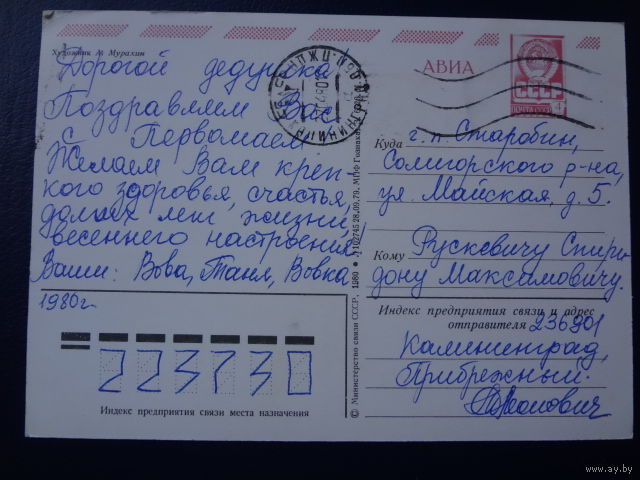 Художник А. Мурахин
Дорогой дедушка
Поздравляем Вас
с Первомаем!
Желаем Вам креп-
кого здоровья, счастья,
долгих лет жизни,
весеннего настроения!
Ваши: Вова, Таня, Вовка
1980г.
223730
Индекс предприятия связи места назначения
© Министерство связи СССР. 1980 • З 102745 28.09.79. МПФ Гознака
АВИА
СССР
ПОЧТА СССР
4
Куда г.п. Старобин,
Солигорского р-на,
ул. Майская, д. 5.
Кому Рускевичу Спири-
дону Максимовичу.
Индекс предприятия связи и адрес
отправителя 236901
Калининград,
Прибрежный.
www.ay.by